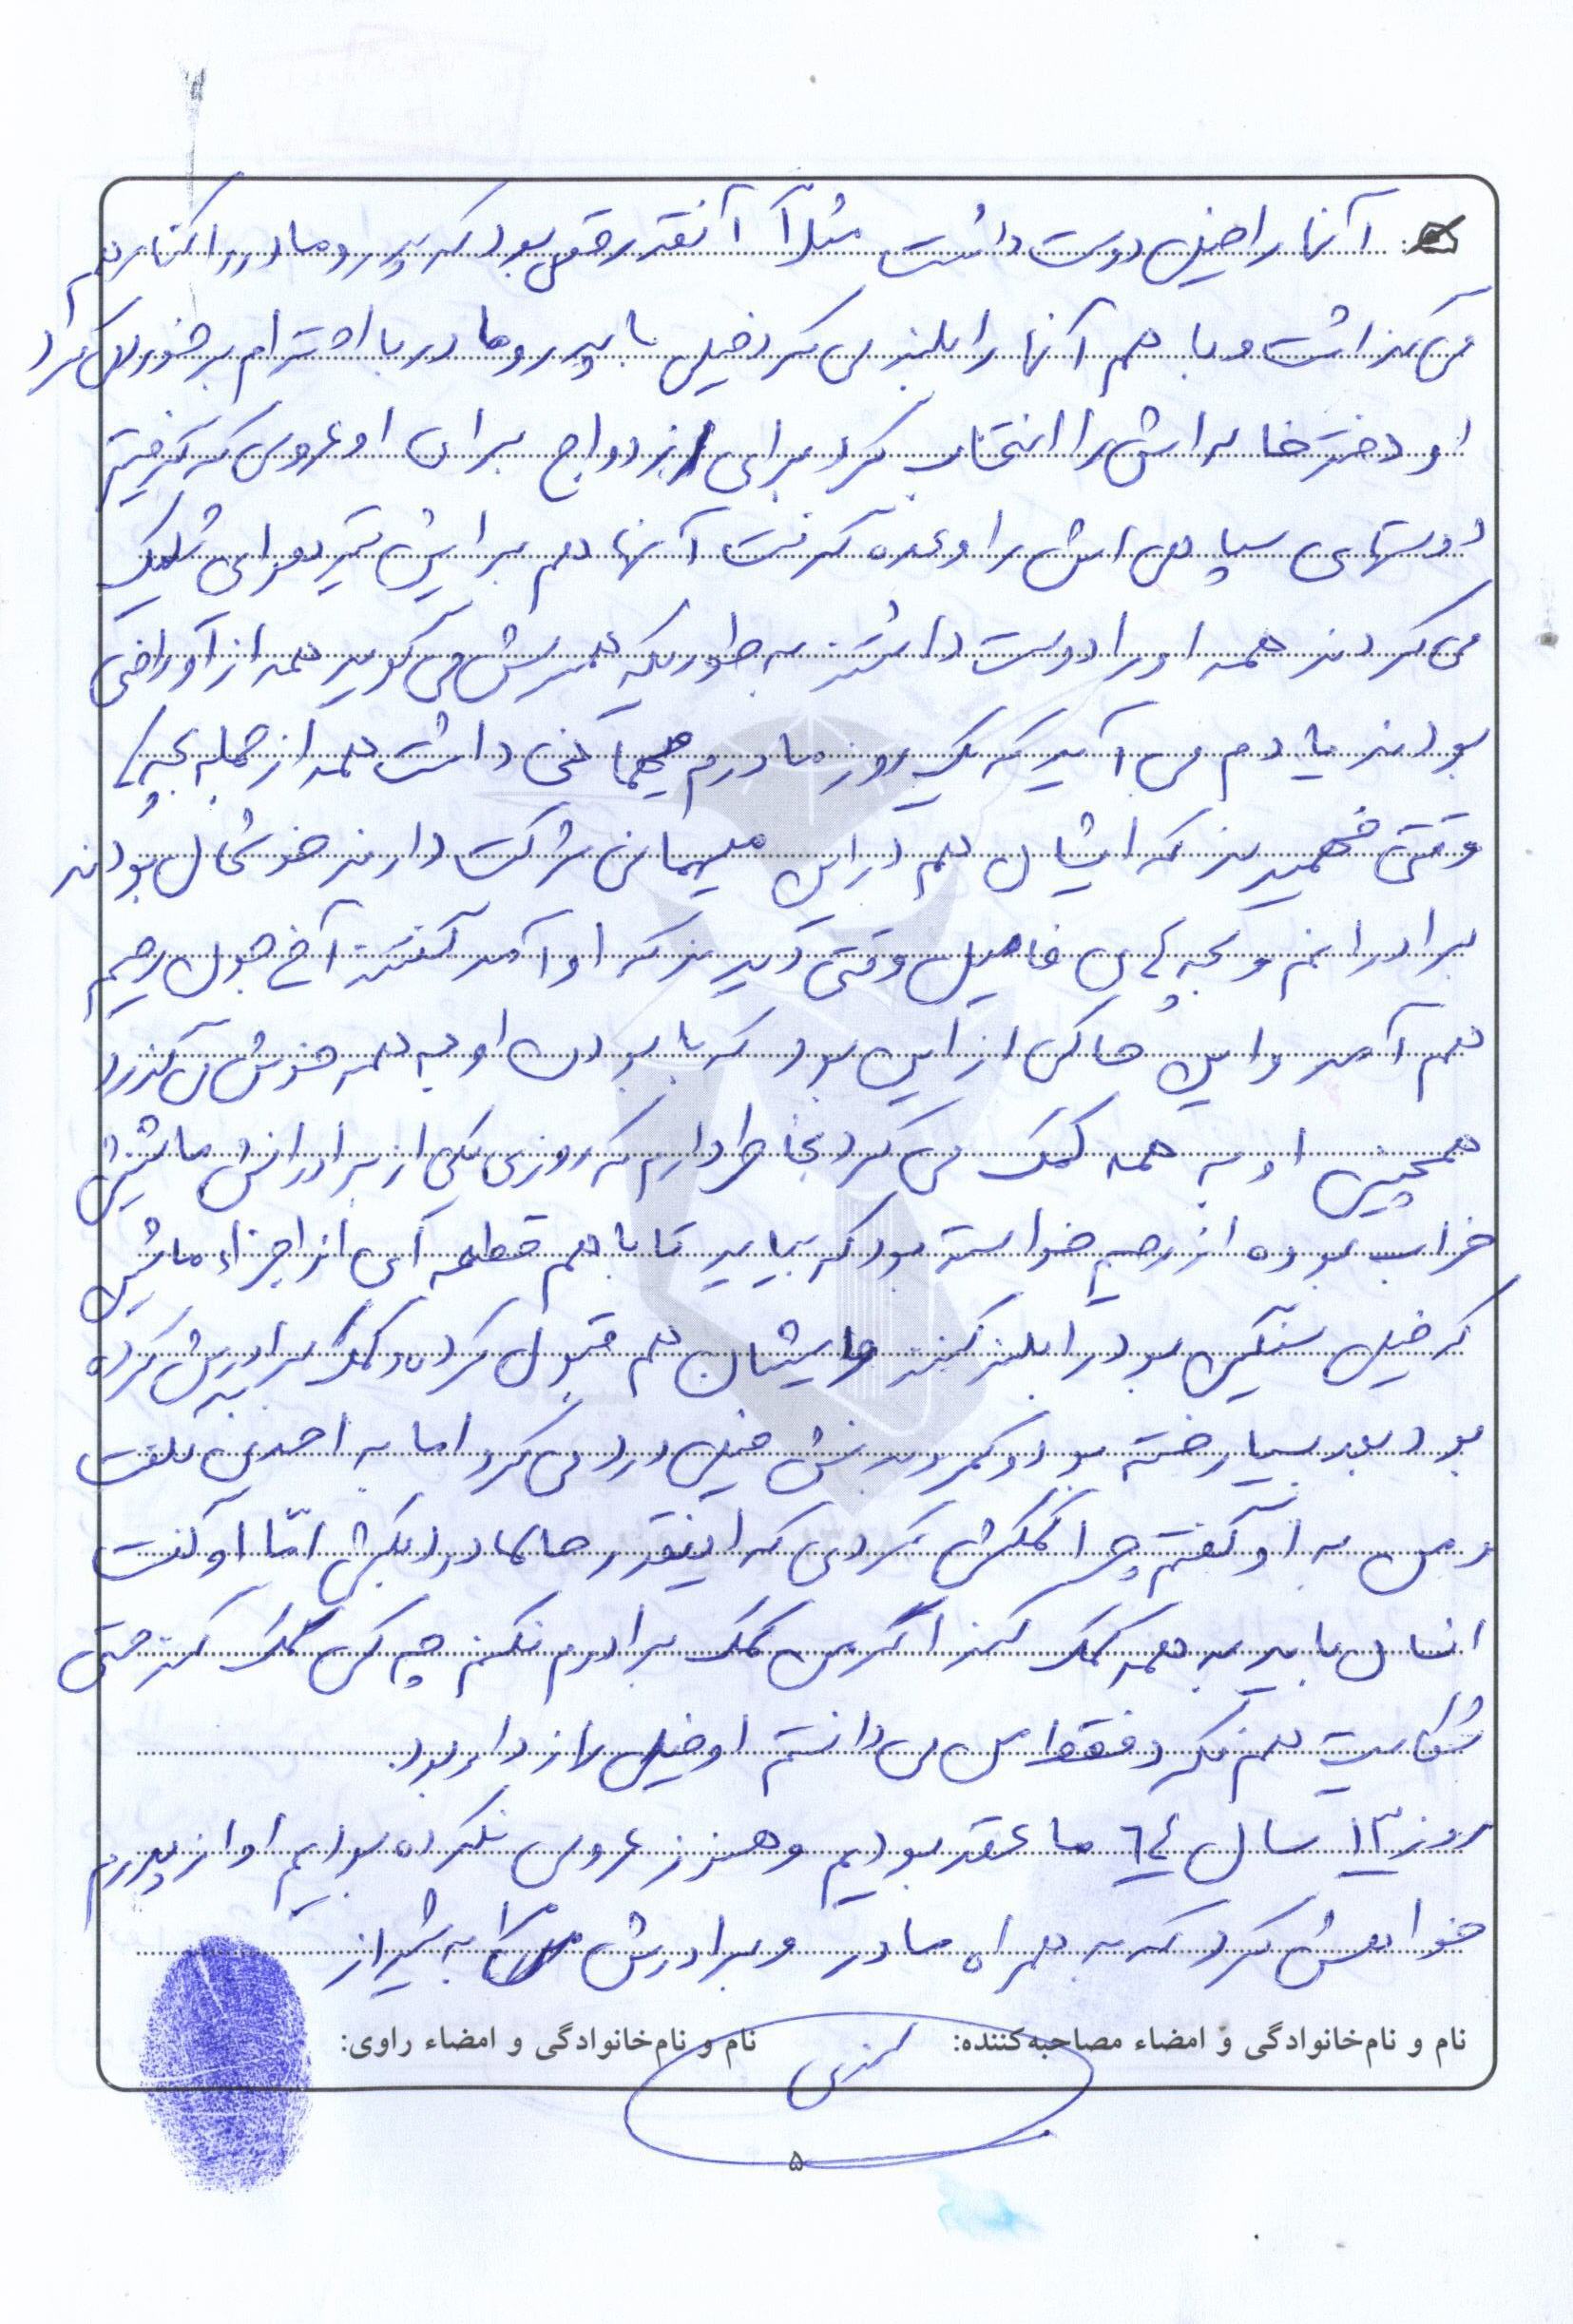 آنها را خیلی دوست داشت مثلاً آنقدر قوی بود که پدر و مادر را کنار هم
می گذاشت و با هم آنها را بلند می کرد خیلی با پدر و مادر با احترام برخورد می کرد
او دختر خاله اش را انتخاب کرد برای ازدواج برای او عروسی که گرفتیم
دوستهای سپاهی اش را وعده گرفت آنها هم برایش تیر هوایی شلیک
می کردند همه او را دوست داشتند به طوریکه همسرش می گوید همه از او راضی
بودند یادم می آید که یک روز مادرم مهمانی داشت همه از جمله بچه ها
وقتی فهمیدند که ایشان هم در این میهمانی شرکت دارند خوشحال بودند
برادرانم و بچه های فامیل وقتی دیدند که او آمد گفتند آخ جون رحیم
هم آمد و این حاکی از این بود که با بودن او به همه خوش می گذرد
همچنین او به همه کمک می کرد بخاطر دارم که روزی یکی از برادرانش ماشینش
خراب بوده از رحیم خواسته بود که بیاید تا با هم قطعه ای از اجزاء ماشین
که خیلی سنگین بود را بلند کنند و ایشان هم قبول کرده و کمک برادرش کرده
بود بعد بسیار خسته بود و کمر و بدنش خیلی درد می کرد اما به احدی نگفت
و من به او گفتم چرا کمکش کردی که اینقدر حالا درد بکشی امّا او گفت
انسان باید به همه کمک کند اگر من کمک برادرم نکنم چه کسی کمک کند حتی
شکایت هم نکرد فقط من می دانستم او خیلی راز دار بود.
روز ۱۳ سال ٦٤ ما عقد بودیم و هنوز عروسی نکرده بودیم او از پدرم
خواهش کرد که به همراه مادر و برادرش به شیراز
نام و نام‌خانوادگی و امضاء مصاحبه‌کننده:
نام و نام‌خانوادگی و امضاء راوی:
۵